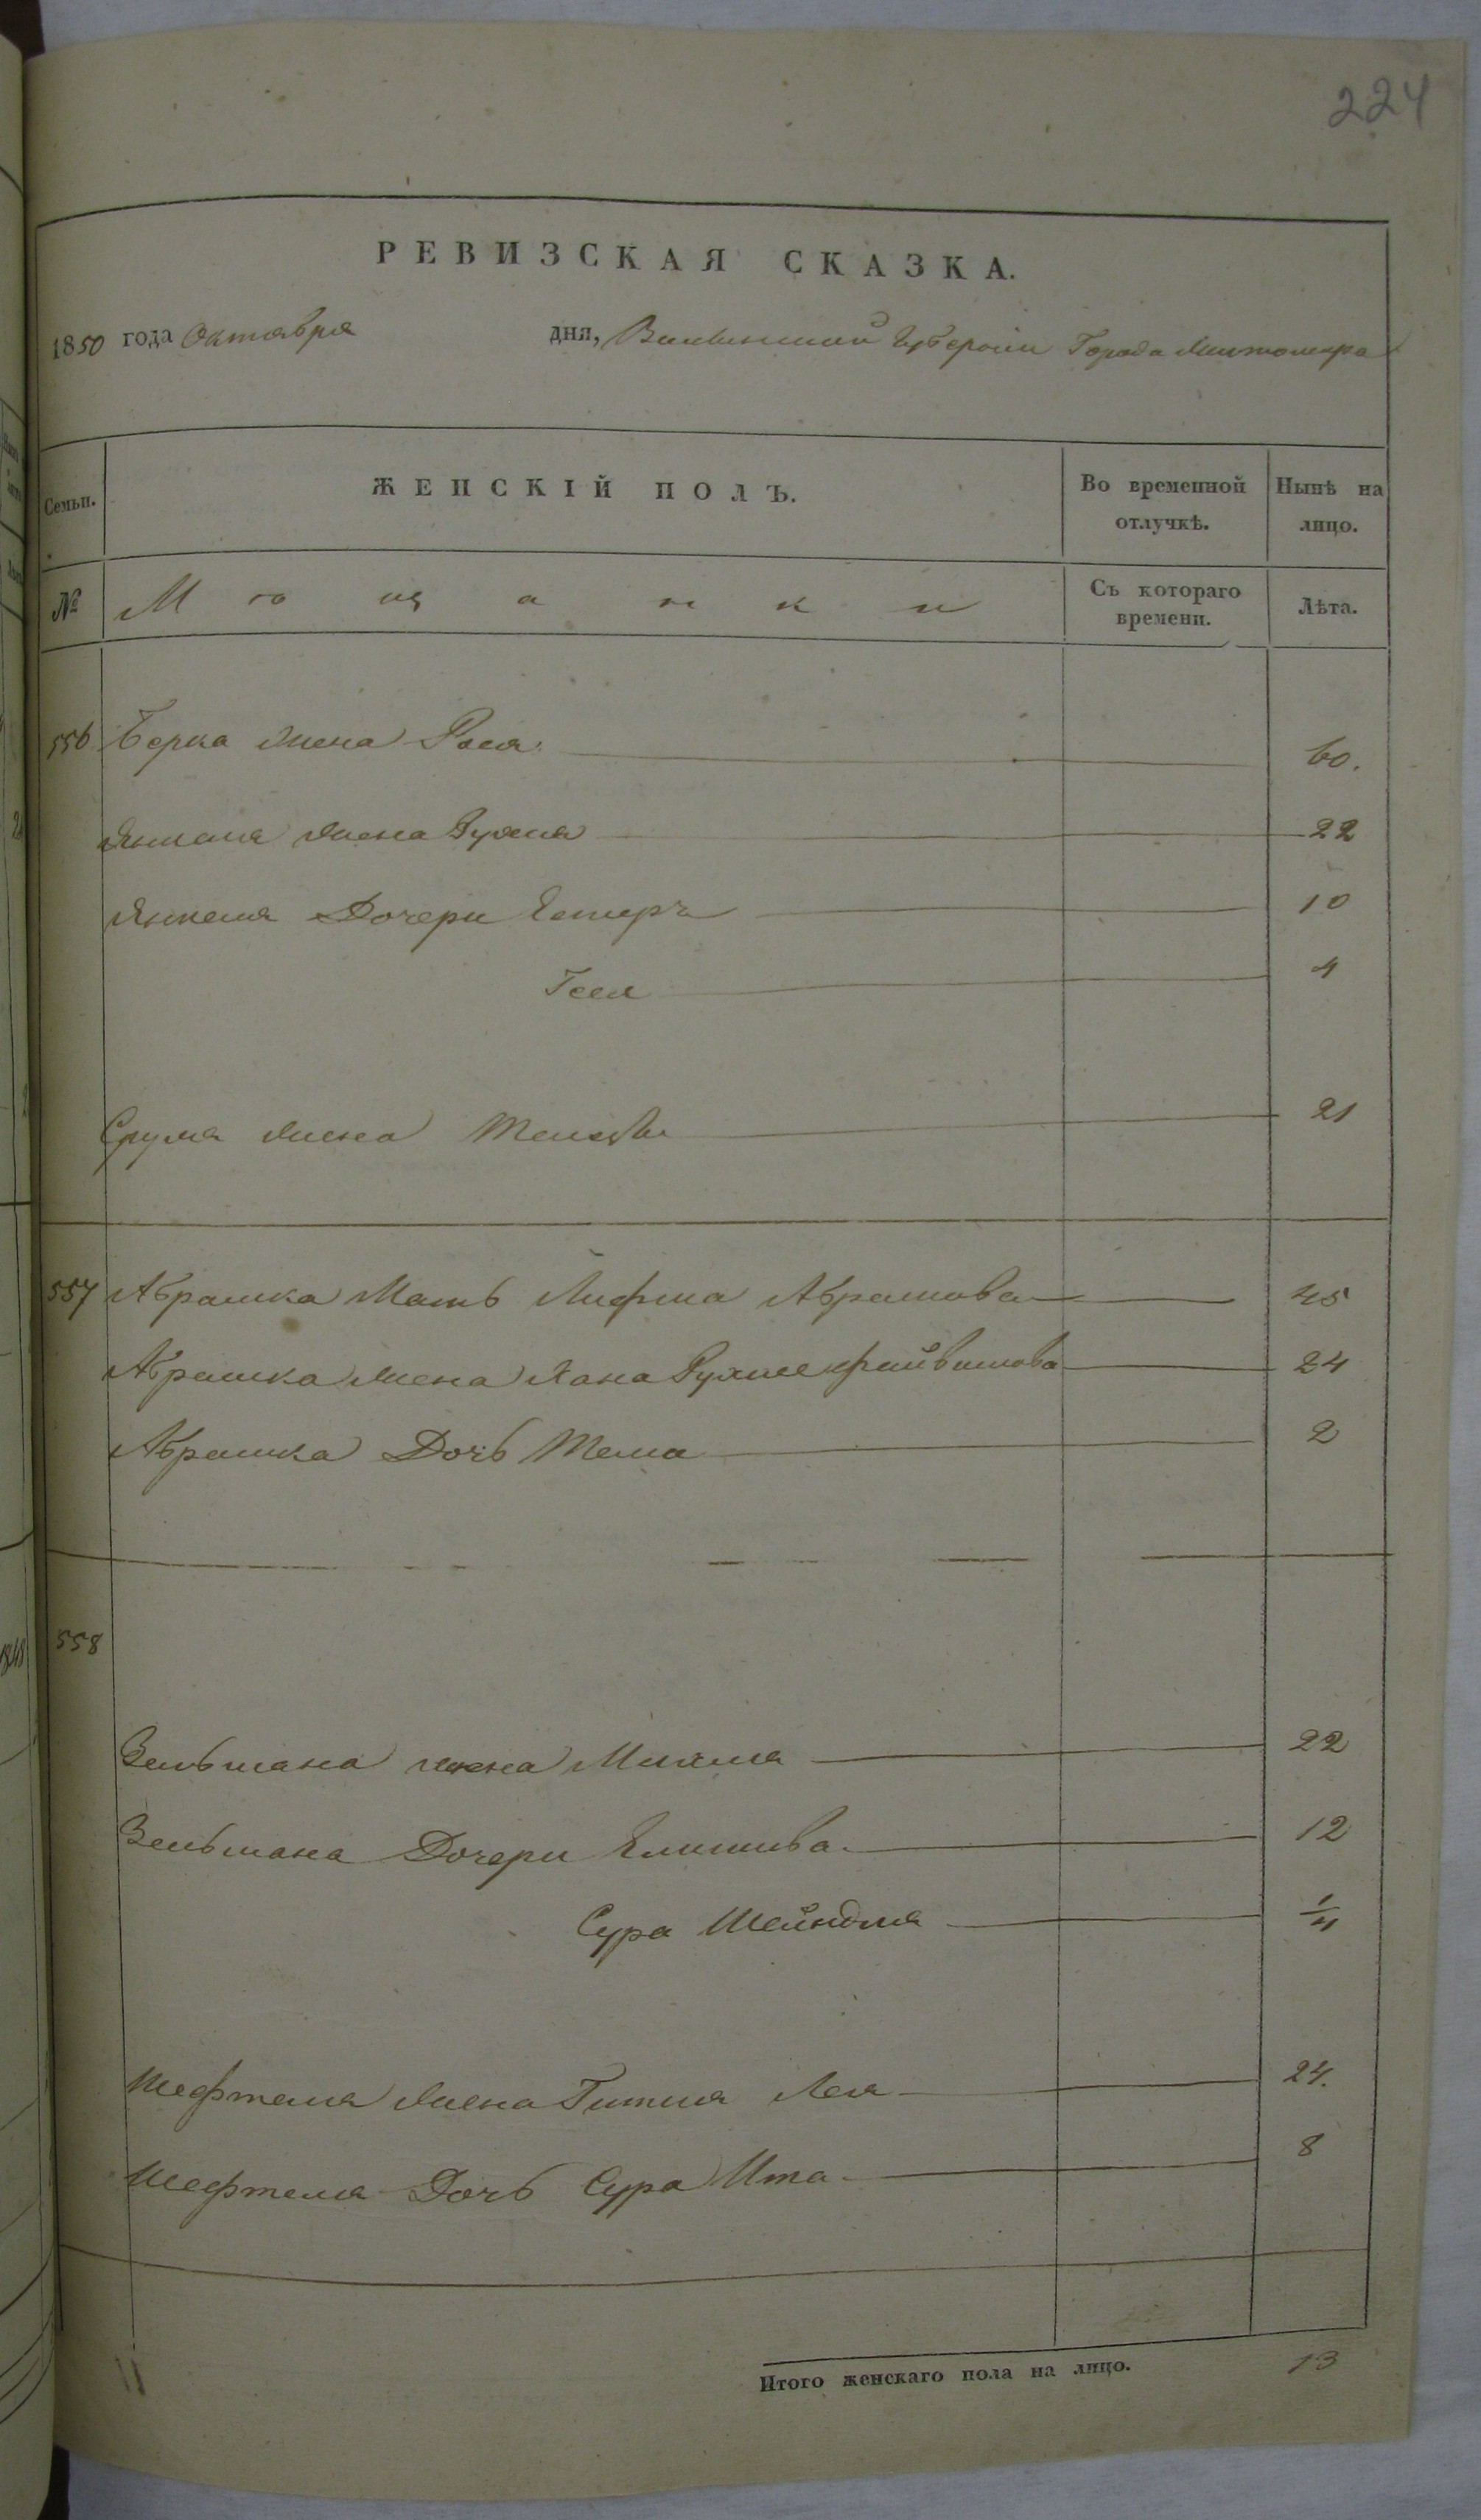 224
РЕВИЗСКАЯ СКАЗКА.
1850 года Октября дня, Виленской Губерніи Города
Семьи. ЖЕНСКІЙ ПОЛЪ. Во временной отлучкѣ. Нынѣ на лицо.
№ Мѣщанки Съ котораго времени. Лѣта.
556 Берка жена Рося 60.
Янкеля жена Рухля 22
Янкеля Дочери Естеръ 10
Геся 4
Срумя жена 21
557 Абрамка Мать Лифша Абрамова 45
Абрамка жена Хана Рухле Файвишова 24
Абрамка Дочь Тема 2
558
Зельмана жена Михля 22
Зельмана Дочери Елишива 12
Сура Шейндля
Шефтеля жена Гитля Лея 24.
Шефтеля Дочь Сура Ита 8
Итого женскаго пола на лицо. 13